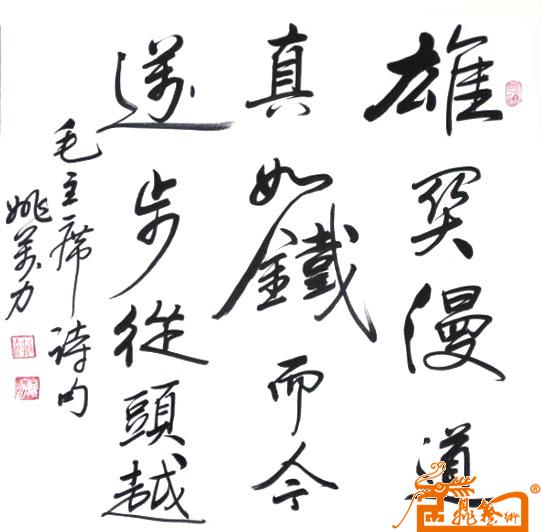 雄關漫道
真如鐵而今
邁步從頭越
毛主席诗句
姚萬力